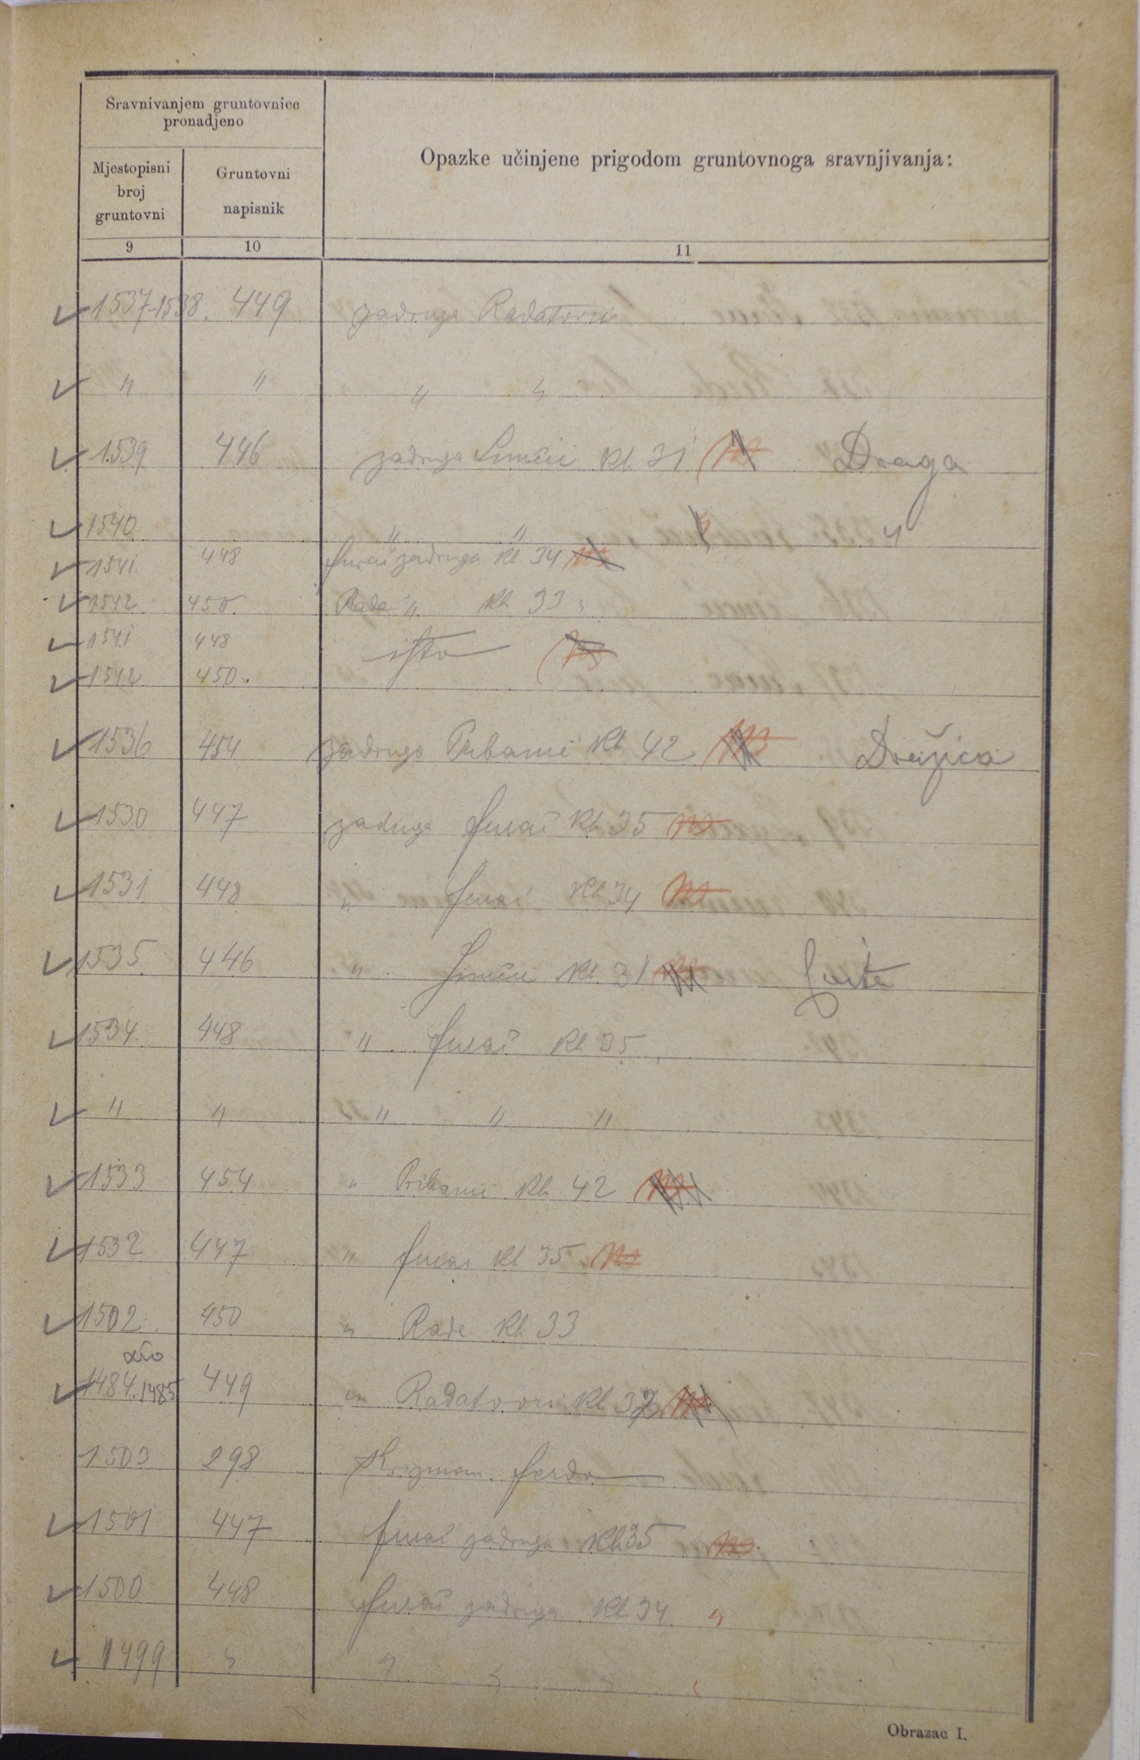 Sravnivanjem gruntovnice
pronadjeno
Opazke učinjene prigodom gruntovnoga sravnjivanja:
Mjestopisni
broj
gruntovni
Gruntovni
napisnik
9 10 11
1537-1538. 449 zadruga Radatović
" " " "
1539 446 zadruga Simčić Kb 31 Draga
1540 " " "
1541 448 zadruga Kb 34
1542 450. Rade " Kb 33
1541 448 isto
1542 450.
1536 454 zadruga Kb 42 Dražica
1530 447 zadruga Kb 35
1531 448 " Kb 34
1535 446 " Simčić Kb. 31
1534 448 " Kb 35
" " " " "
1533 454 " Kb 42
1532 447 " Kb 35
1502. 450 " Rade Kb 33
dio
1484.1485 449 " Radatović Kb 32
1503 298 Krizman
1501 447 zadruga Kb 35
1500 448 zadruga Kb 34 "
1499 " " " "
Obrazac I.